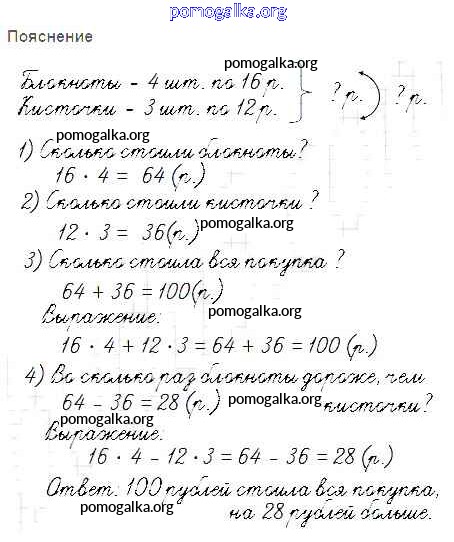 pomogalka.org
Пояснение
pomogalka.org
Блокноты - 4 шт. по 16 р.
Кисточки - 3 шт. по 12 р. } ? р. ? р.
pomogalka.org
1) Сколько стоили блокноты?
16 · 4 = 64 (р.)
2) Сколько стоили кисточки ?
12 · 3 = 36(р.) pomogalka.org
3) Сколько стоила вся покупка ?
64 + 36 = 100(р.)
pomogalka.org
Выражение:
16 · 4 + 12 · 3 = 64 + 36 = 100 (р.)
4) Во сколько раз блокноты дороже, чем
64 - 36 = 28 (р.) pomogalka.org кисточки?
pomogalka.org
Выражение:
16 · 4 - 12 · 3 = 64 - 36 = 28 (р.)
Ответ: 100 рублей стоила вся покупка,
pomogalka.org
на 28 рублей больше.